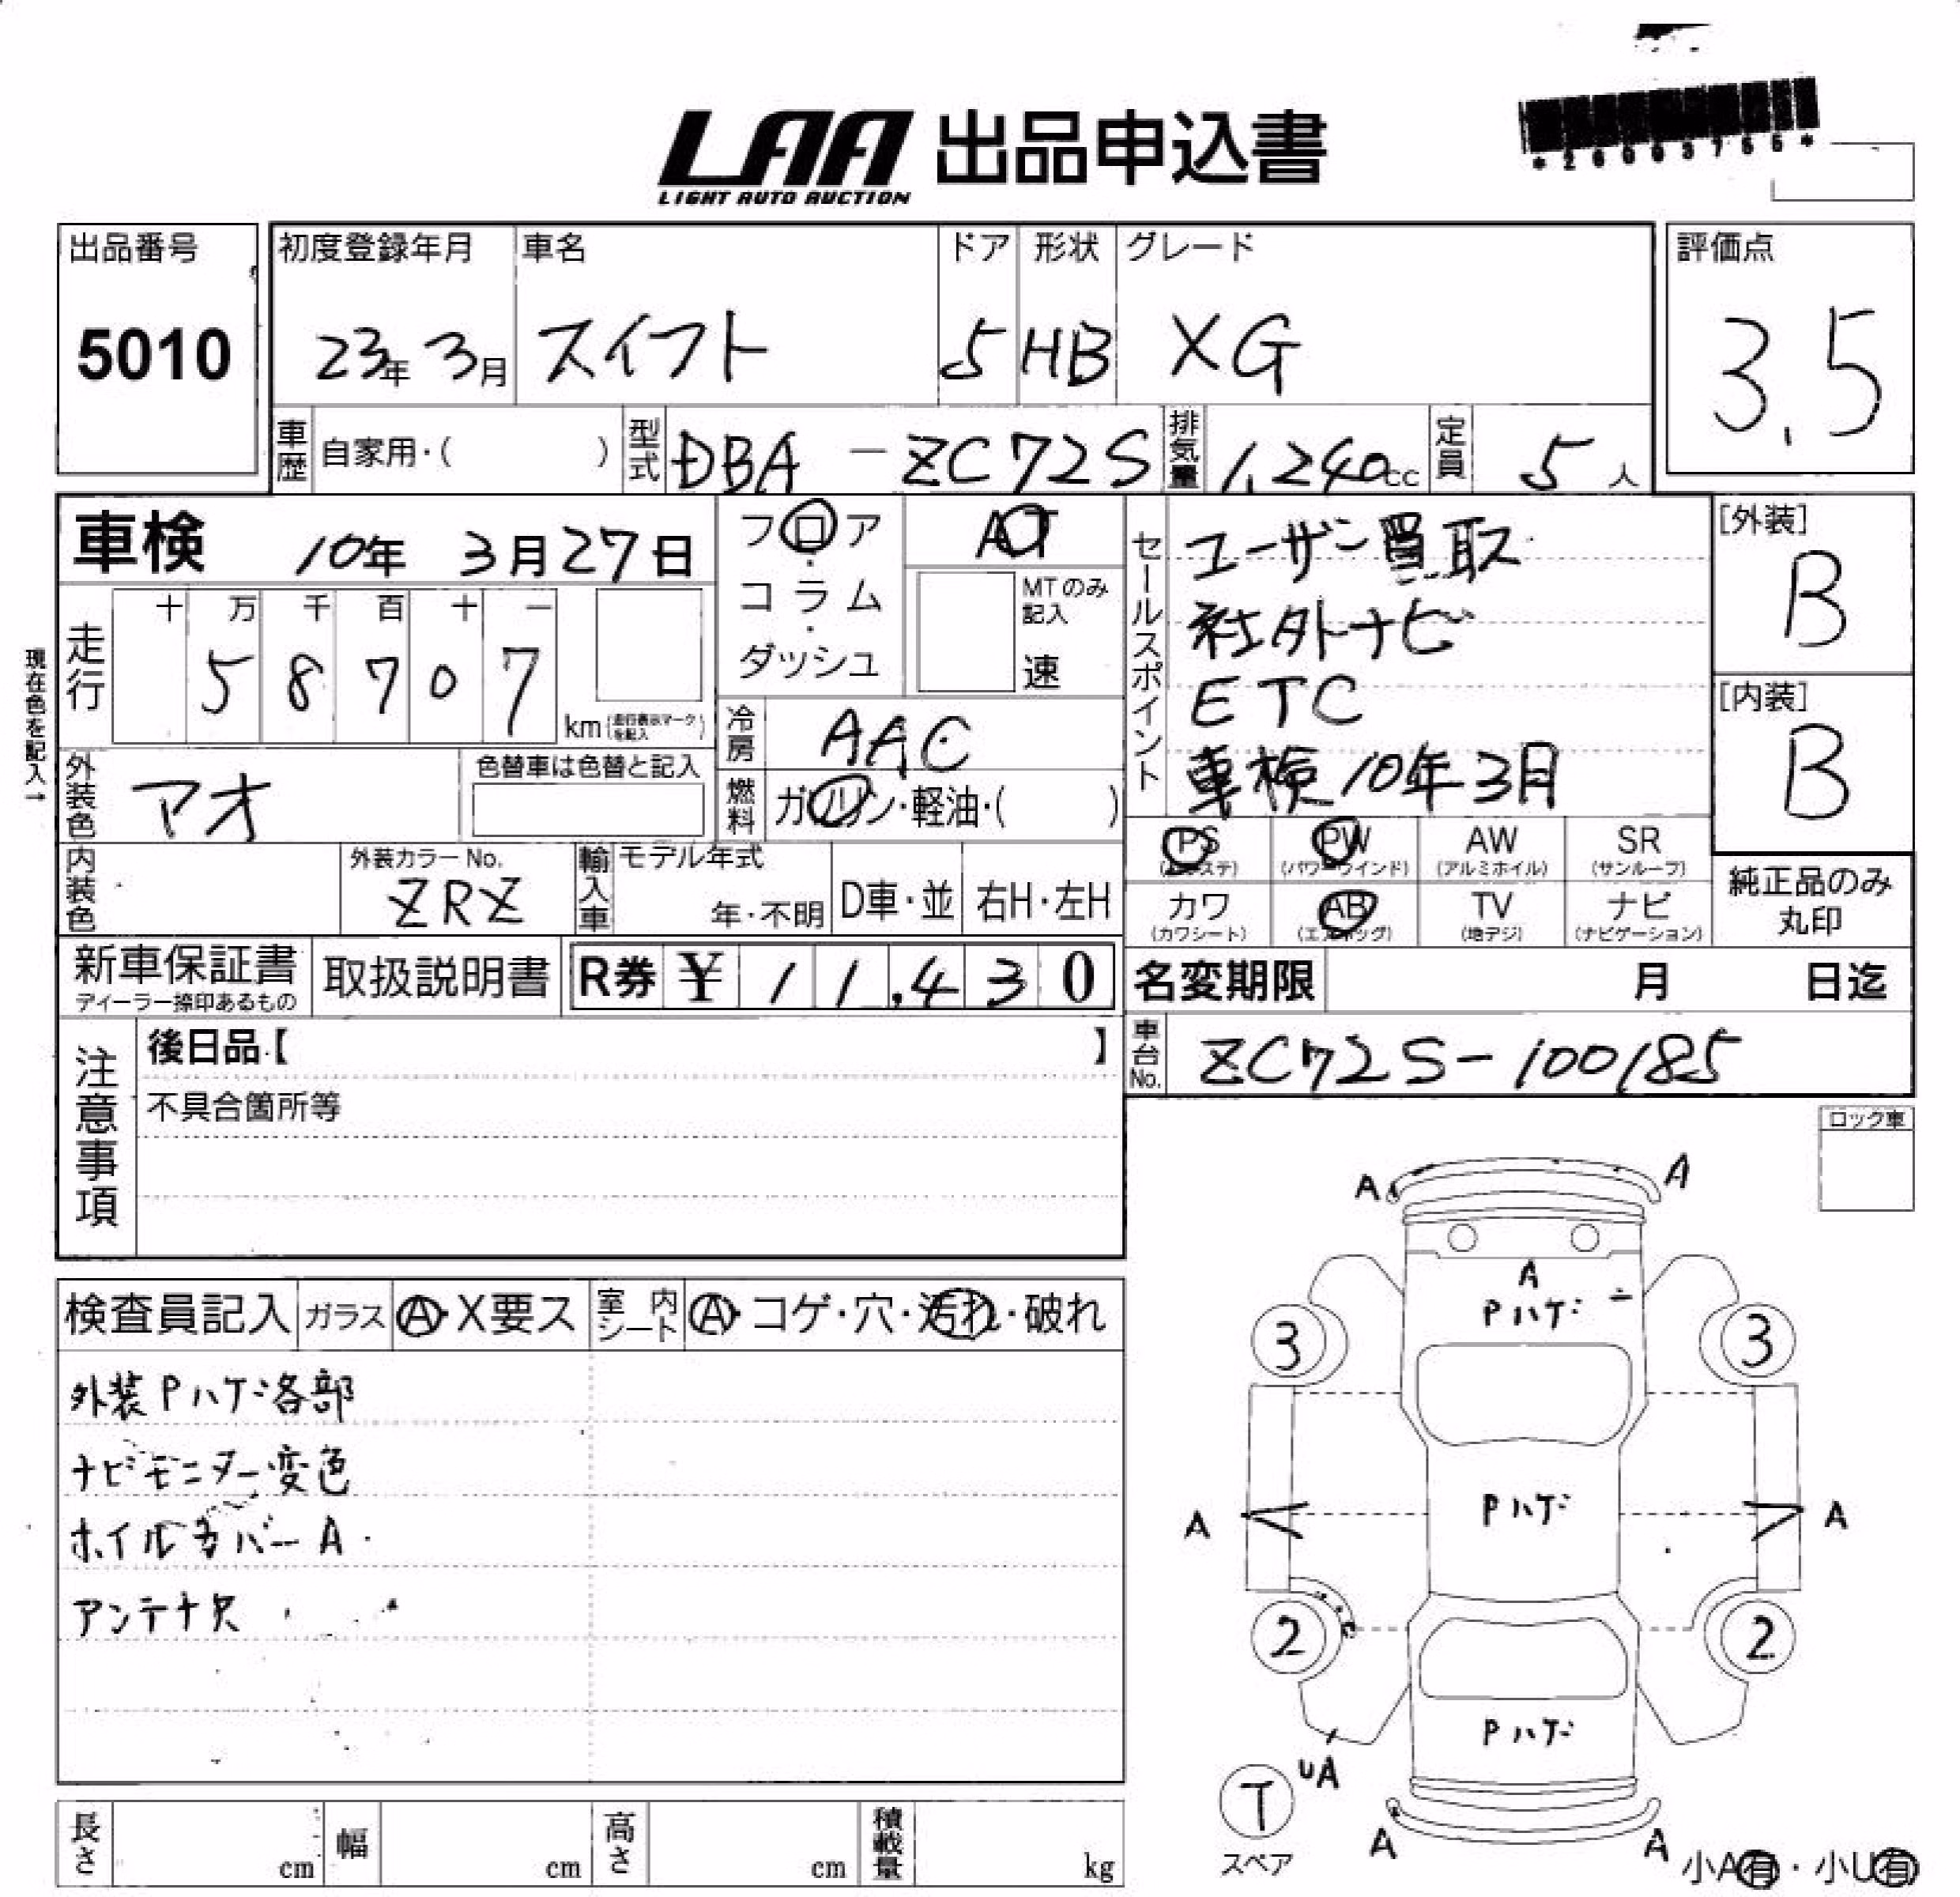 LAA 出品申込書
LIGHT AUTO AUCTION
出品番号
5010
初度登録年月
23年 3月
車名
スイフト
ドア
5
形状
HB
グレード
XG
評価点
3.5
車歴 自家用・( )
型式 DBA - ZC72S
排気量 1,240cc
定員 5人
車検 10年 3月27日
フロア・コラム・ダッシュ
AT
MTのみ記入
速
現在色を記入→
走行
十 万 千 百 十 一
5 8 7 0 7
km
冷房 AAC
燃料 ガソリン・軽油・( )
外装色 アオ
色替車は色替と記入
内装色
外装カラーNo.
ZRZ
輸入車
モデル年式
年・不明
D車・並
右H・左H
セールスポイント
ユーザー買取
社外ナビ
ETC
車検10年3月
[外装]
B
[内装]
B
PS (パワステ)
PW (パワーウインド)
AW (アルミホイル)
SR (サンルーフ)
カワ (カワシート)
AB (エアバッグ)
TV (地デジ)
ナビ (ナビゲーション)
純正品のみ
丸印
新車保証書
ディーラー捺印あるもの
取扱説明書
R券 ¥ 11,430
名変期限 月 日迄
車台No. ZC72S-100185
注意事項
後日品【 】
不具合箇所等
ロック車
検査員記入
ガラス A・X要ス
室内シート A・コゲ・穴・汚れ・破れ
外装Pハゲ各部
ナビモニター変色
ホイルカバーA
アンテナ欠
A A
A
Pハゲ
3 3
A Pハゲ A
2 2
Pハゲ
UA
T
スペア
A A
小A有・小U有
長さ cm
幅 cm
高さ cm
積載量 kg